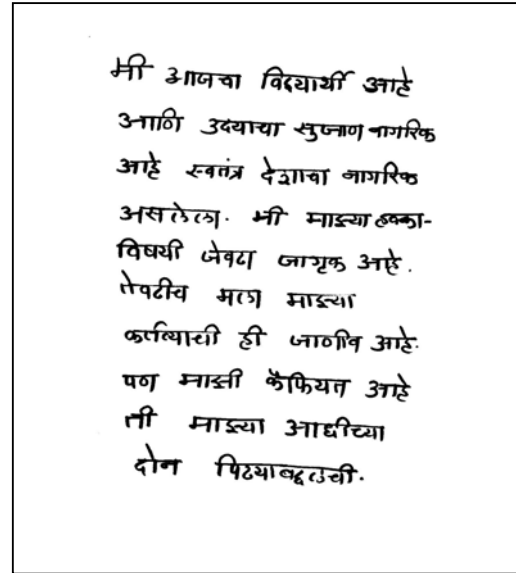 मी आजचा विद्यार्थी आहे
आणि उदयाचा सुजाण नागरिक
आहे स्वतंत्र देशाचा नागरिक
असलेला. मी माझ्या हक्का-
विषयी जेवढा जागृक आहे.
तेवढीच मला माझ्या
कर्तव्याची ही जाणीव आहे.
पण माझी कैफियत आहे
ती माझ्या आधीच्या
दोन पिढ्याबद्दलची.